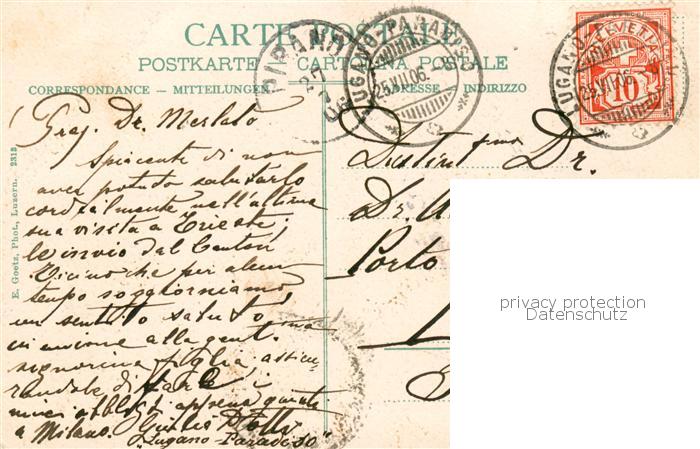 CARTE POSTALE
POSTKARTE CARTOLINA POSTALE
CORRESPONDANCE — MITTEILUNGEN ADRESSE INDIRIZZO
PIRANO
LUGANO-PARADISO
25.VII.06.
LUGANO
HELVETIA
10
E. Goetz, Phot., Luzern. 2313
Preg. Dr. Merlato
Spiacente di non
aver potuto salutarlo
cordialmente nell'ultima
sua visita a Trieste;
le invio dal Canton
Ticino che per alcun
tempo soggiorniamo,
un sentito saluto
in unione alla gent.
signorina figlia, assicu-
randola di fare i
miei appena giunti
a Milano. Giulio
"Lugano-Paradiso"
Distint Dr.
Dr.
Porto
privacy protection
Datenschutz